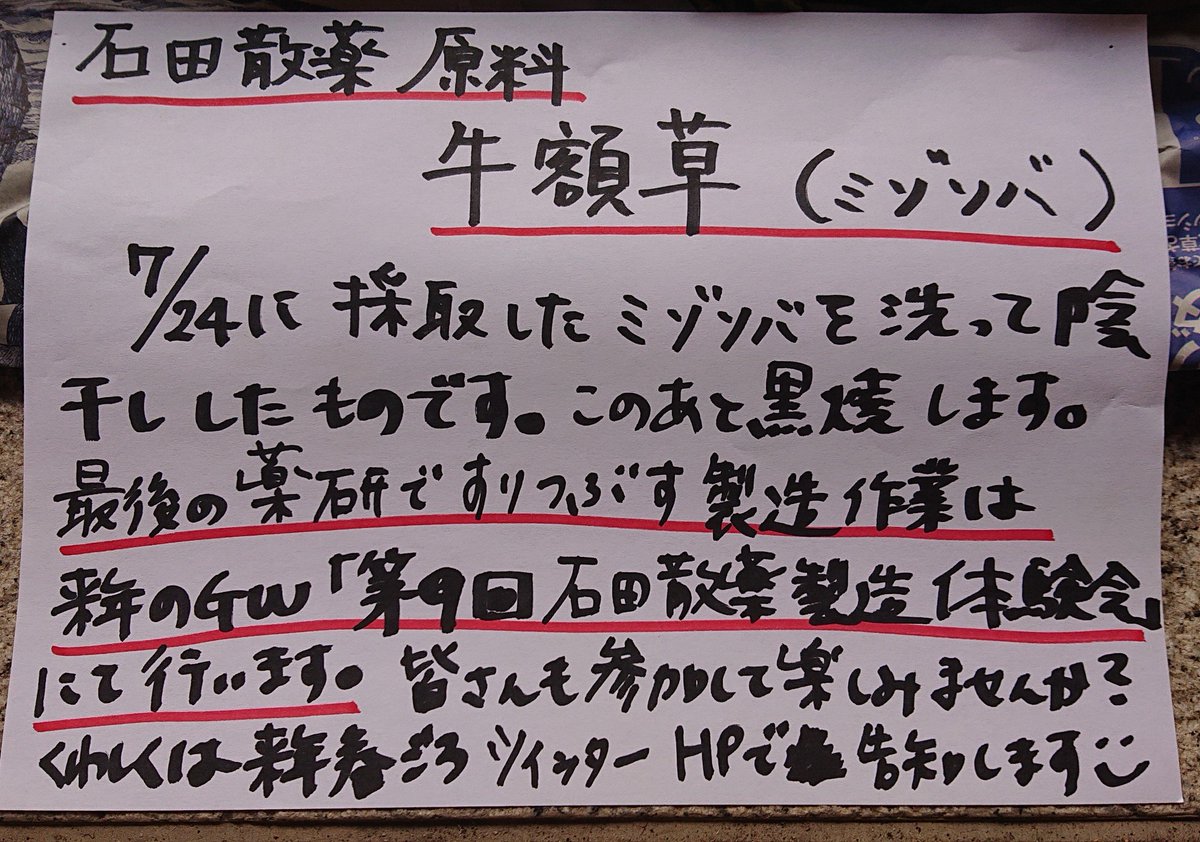 石田散薬 原料
牛額草（ミゾソバ）
7/24に採取したミゾソバを洗って陰
干ししたものです。このあと黒焼します。
最後の薬研ですりつぶす製造作業は
来年のGW「第9回石田散薬製造体験会」
にて行います。皆さんも参加して楽しみませんか?
くわしくは来年春ごろツイッターHPで告知します